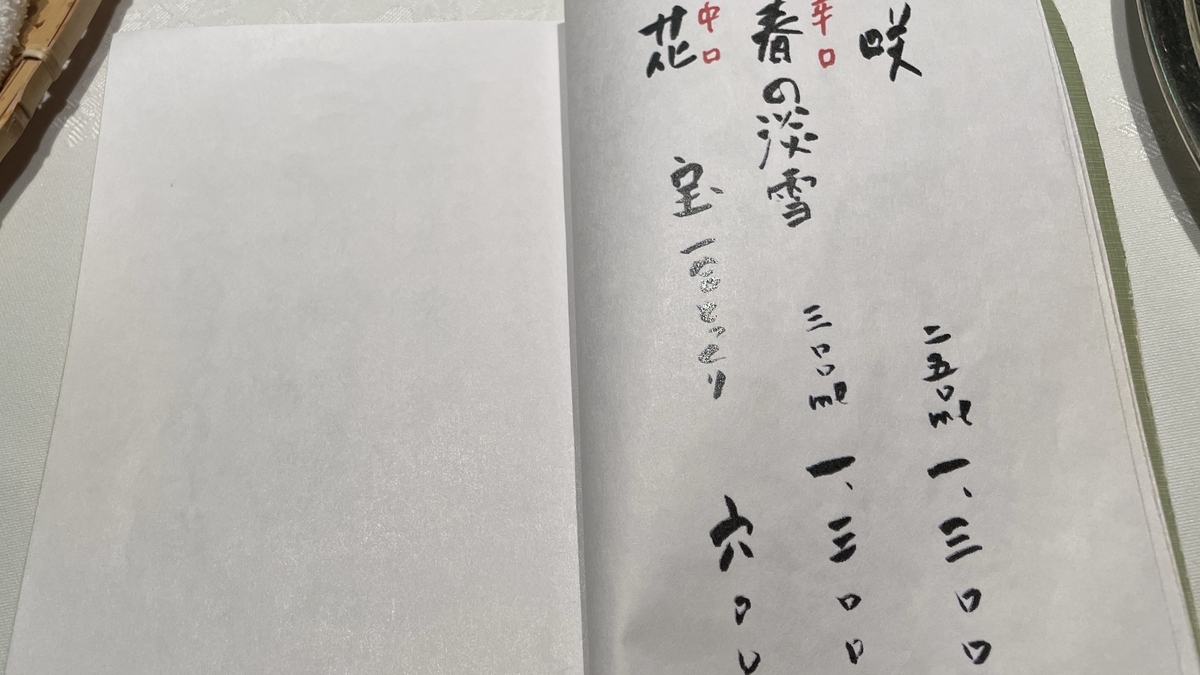 咲 二五〇ml 一、三〇〇
辛口
春の淡雪 三〇〇ml 一、三〇〇
中口
花 宝 一合とっくり 六〇〇